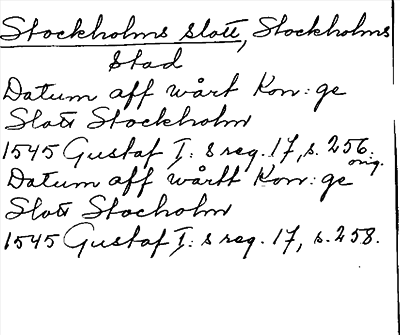 Stockholms slott, Stockholms
stad
Datum aff wårt Kon: ge
Slott Stockholm
1545 Gustaf I: s reg. 17, s. 256.
orig.
Datum aff wårtt Kon: ge
Slott Stocholm
1545 Gustaf I: s reg. 17, s. 258.